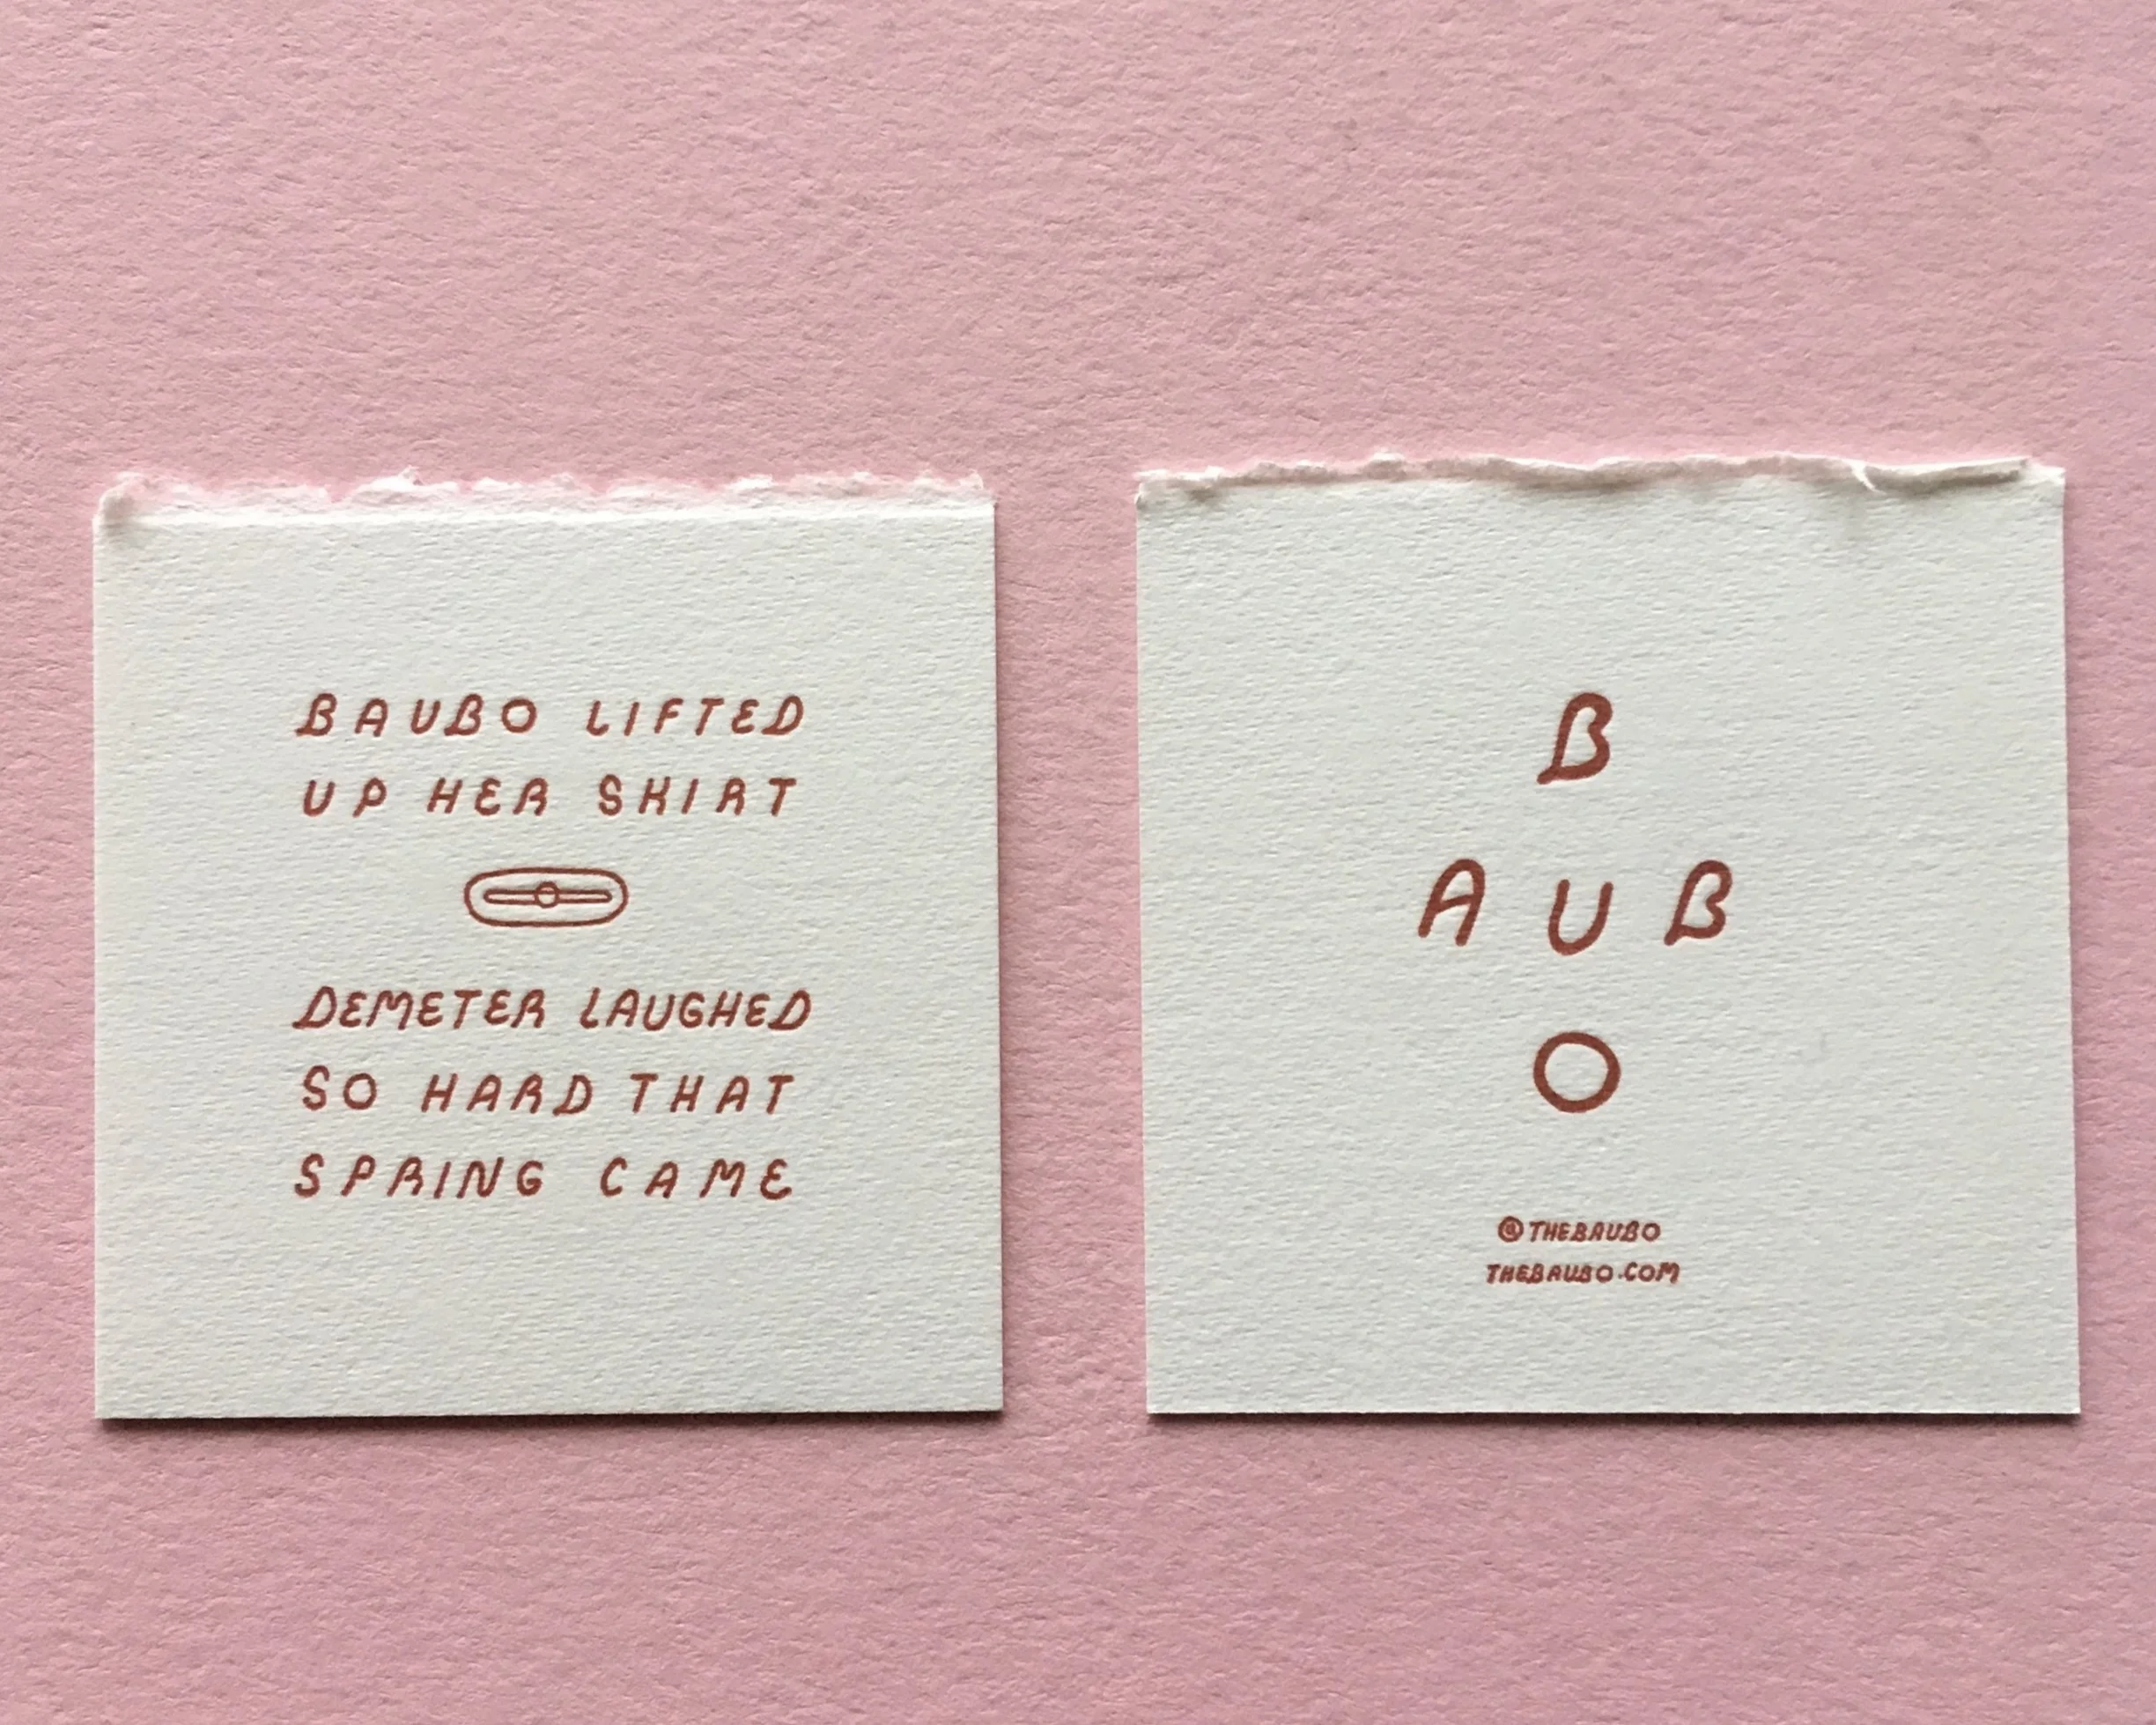 BAUBO LIFTED
UP HER SHIRT
DEMETER LAUGHED
SO HARD THAT
SPRING CAME
B
AUB
O
@THEBAUBO
THEBAUBO.COM